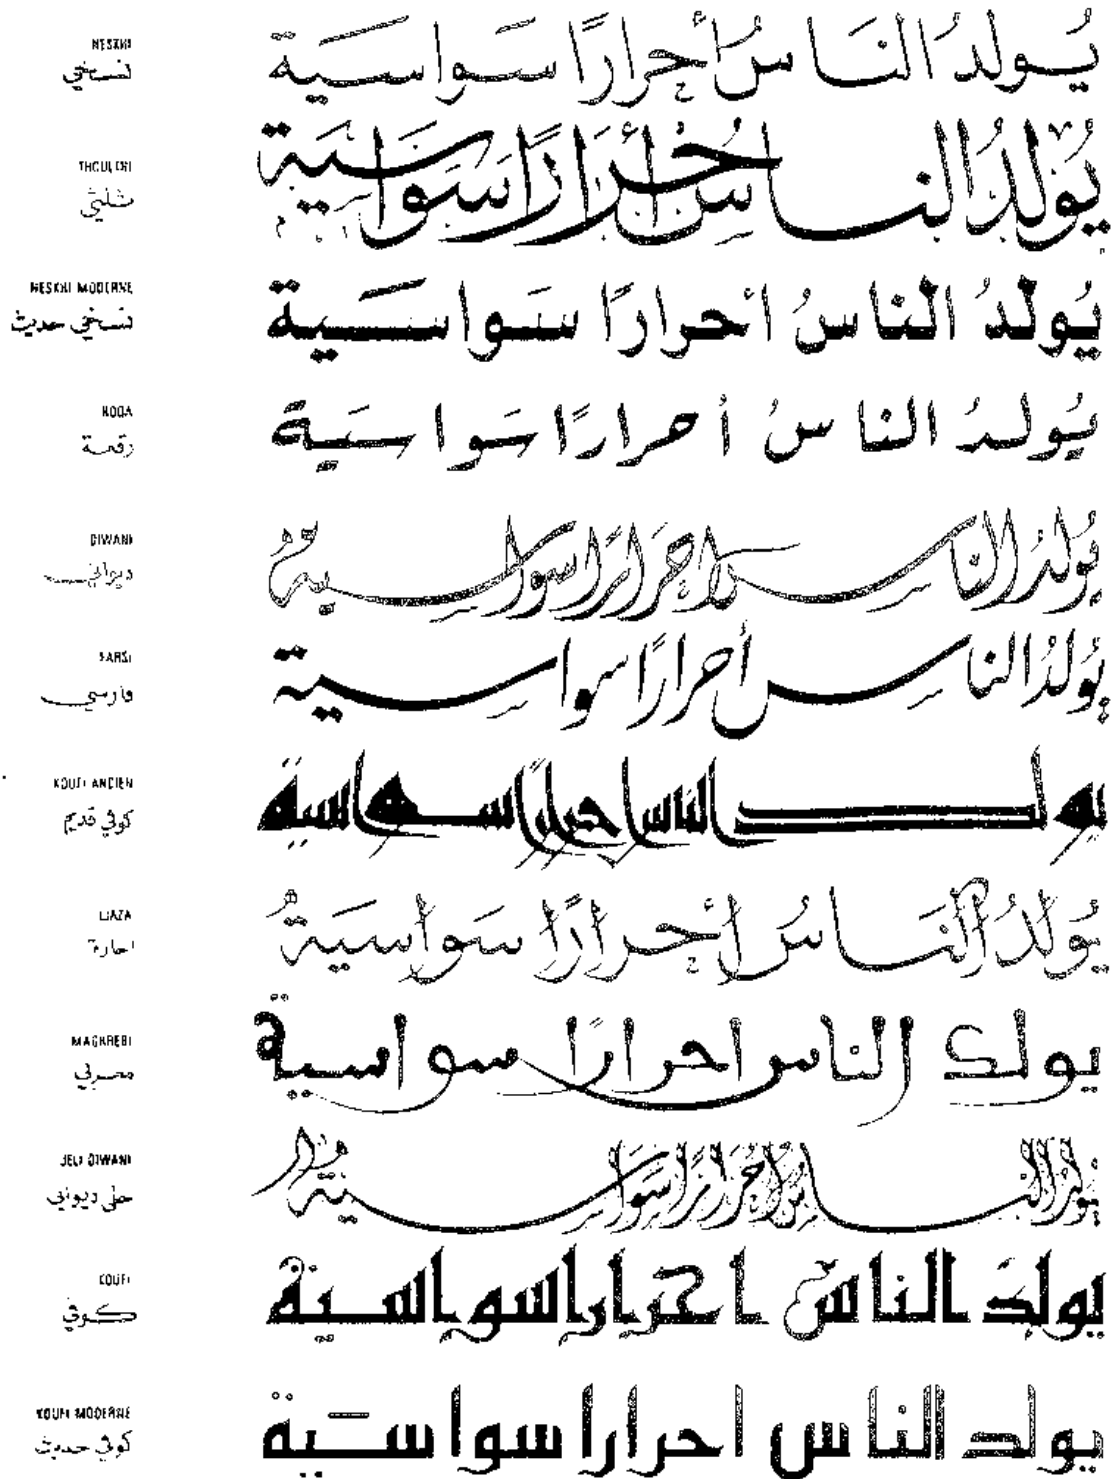 NESKHI
نسخي
يُولدُ النَاسُ أحرارًا سَواسَية
THOULTHI
ثلثي
يُولَدُ الناسُ أحرَارًا سَواسَية
NESKHI MODERNE
نسخي حديث
يُولدُ الناسُ احرارًا سَواسَية
ROQA
رقعة
يُولدُ الناسُ أحرارًا سَواسَية
DIWANI
ديواني
يُولدُ الناس احرَارًا سواسية
FARSI
فارسي
يُولدُ الناس أحرارًا سواسية
KOUFI ANCIEN
كوفي قديم
يولد الناس احرارًا سواسية
IJAZA
اجازة
يُولدُ النَاسُ احرارًا سَواسَيةُ
MAGHREBI
مغربي
يولد الناس احرارًا سواسية
JELI DIWANI
جلي ديواني
يُولدُ الناس احرَارًا سَواسية
KOUFI
كوفي
يولد الناس احرارا سواسية
KOUFI MODERNE
كوفي حديث
يولد الناس احرارا سواسَية